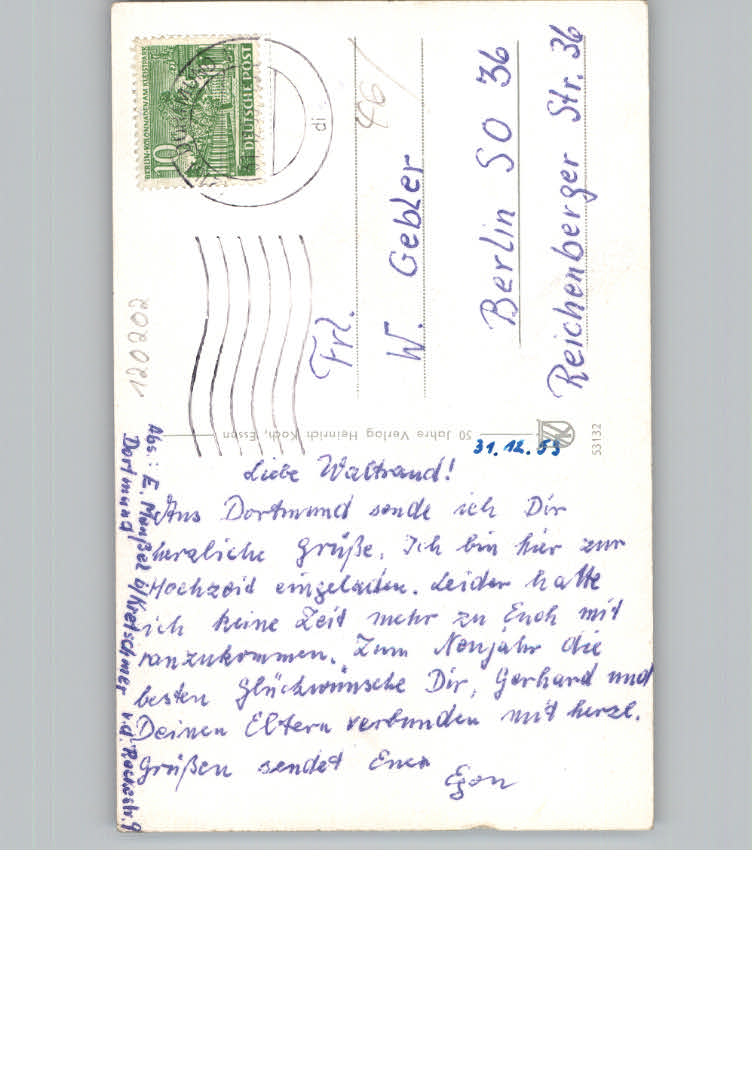 BERLIN-KOLONNADEN AM KLEISTPARK
10
DEUTSCHE POST
di
46/
Frl.
W. Gebler
Berlin SO 36
Reichenberger Str. 36
120202
50 Jahre Verlag Heinrich Koch, Essen
53132
31.12.53
Liebe Waltraud!
Aus Dortmund sende ich Dir
herzliche Grüße. Ich bin hier zur
Hochzeit eingeladen. Leider hatte
ich keine Zeit mehr zu Euch mit
ranzukommen. Zum Neujahr die
besten Glückwünsche Dir, Gerhard und
Deinen Eltern verbunden mit herzl.
Grüßen sendet Euer
Egon
Abs.: E. b/Kretschmer
Dortmund v.d.